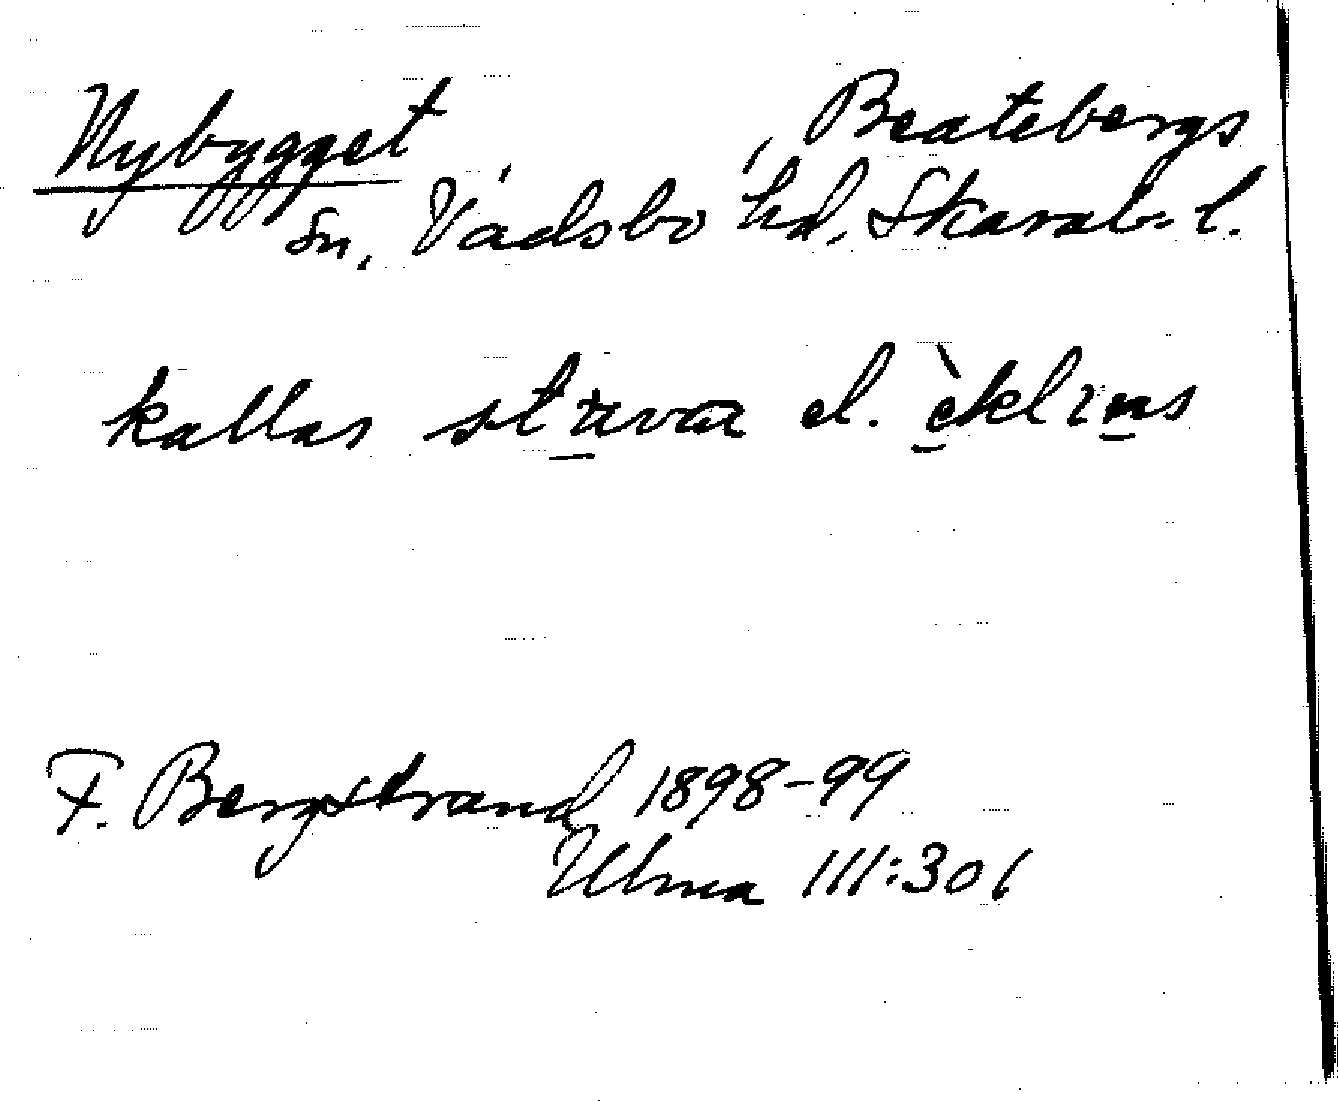 Nybygget, Beatebergs
sn, Vadsbo hd, Skarab. l.
kallas el.
F. Bergstrand 1898-99
Ulma 111:301